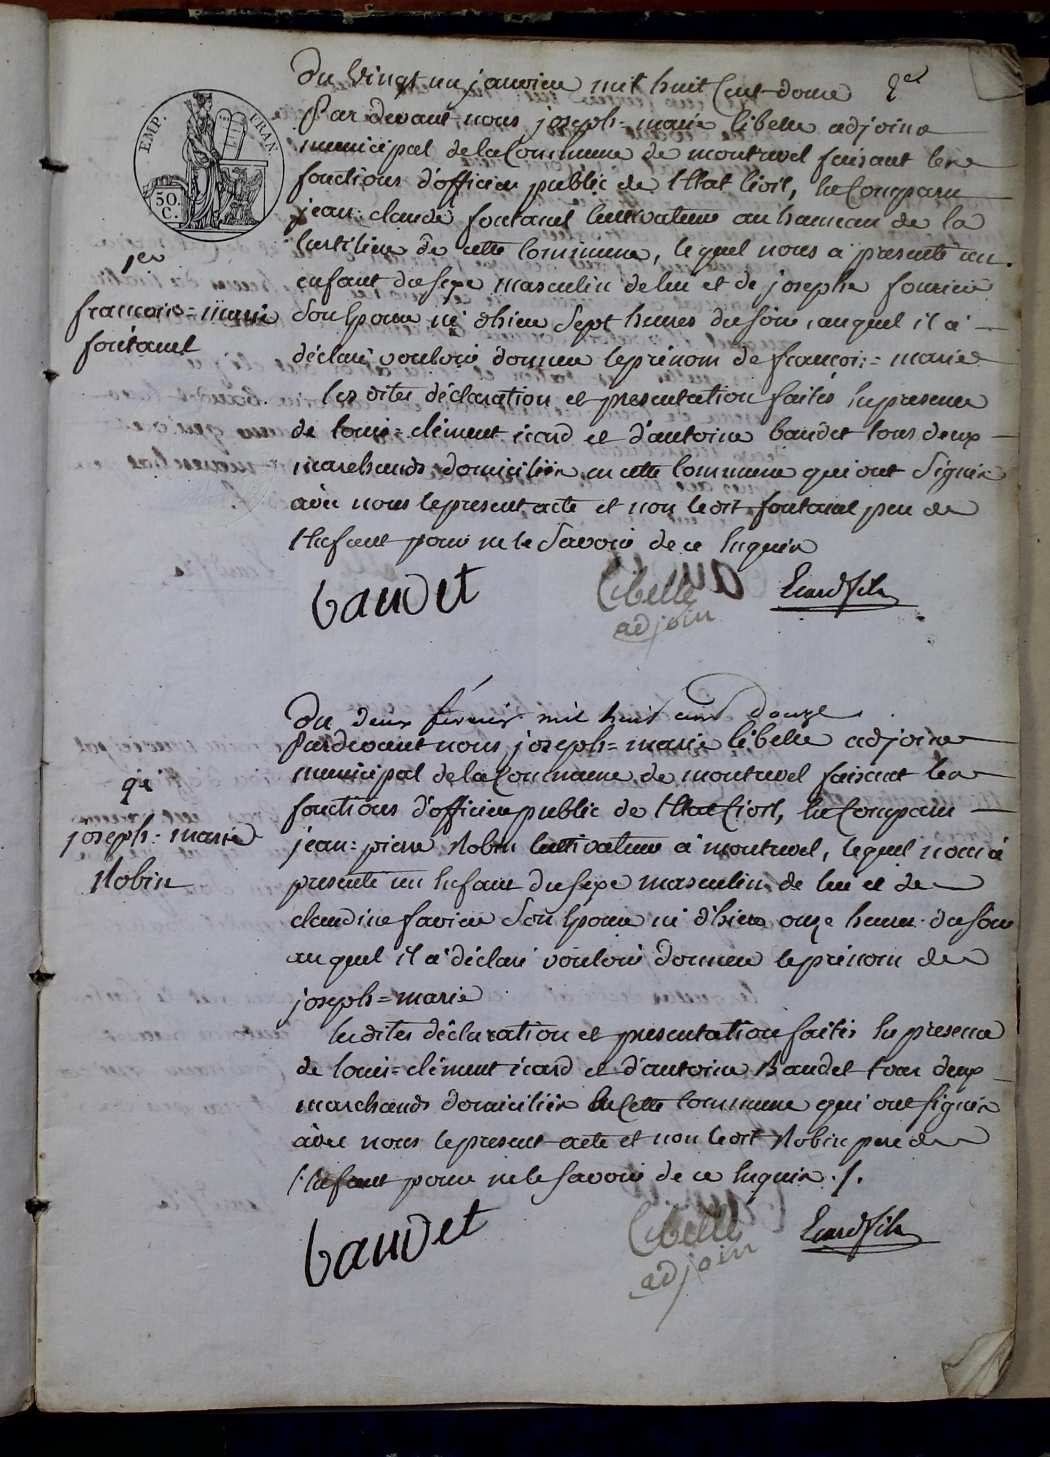 Du vingt un janvier mil huit Cent douze
Par devant nous joseph=marie libelle adjoint
municipal de la Commune de montrevel faisant les
fonctions d'officier public de l'Etat Civil, En Comparu
jean=claude fontanel Cultivateur au hameau de la
de cette Commune, lequel nous a presenté un
enfant du sexe masculin de lui et de josephe
Son Epouse né d'hier Sept heures du soir, auquel il a
déclaré vouloir donner le prénom de françois=marie
les dites déclaration et presentation faites En presence
de louis=clément icard et d'antoine baudet tous deux
marchands domiciliés en cette Commune qui ont Signés
avec nous le present acte et non le dit fontanel pere de
l'Enfant pour ne le Savoir de ce Enquis
1er
françois=marie
fontanel
EMP. FRAN.
50.
C.
baudet
Libelle
adjoin
Icard fils
Du deux février mil huit cent douze
Pardevant nous joseph=marie libelle adjoint
municipal de la Commune de montrevel faisant les
fonctions d'officier public de l'Etat Civil, En Comparu
jean=pierre Robin Cultivateur a montrevel, lequel nous a
presenté un Enfant du sexe masculin de lui et de
claudine favier Son Epouse né d'hier onze heures du soir
auquel il a déclaré vouloir donner le prénom de
joseph=marie
les dites déclaration et presentation faites En presence
de louis=clément icard et d'antoine Baudet tous deux
marchands domiciliés En Cette Commune qui ont signés
avec nous le present acte et non le dit Robin pere de
l'Enfant pour ne le Savoir de ce Enquis ./.
joseph=marie
Robin
baudet
Libelle
adjoin
Icard fils